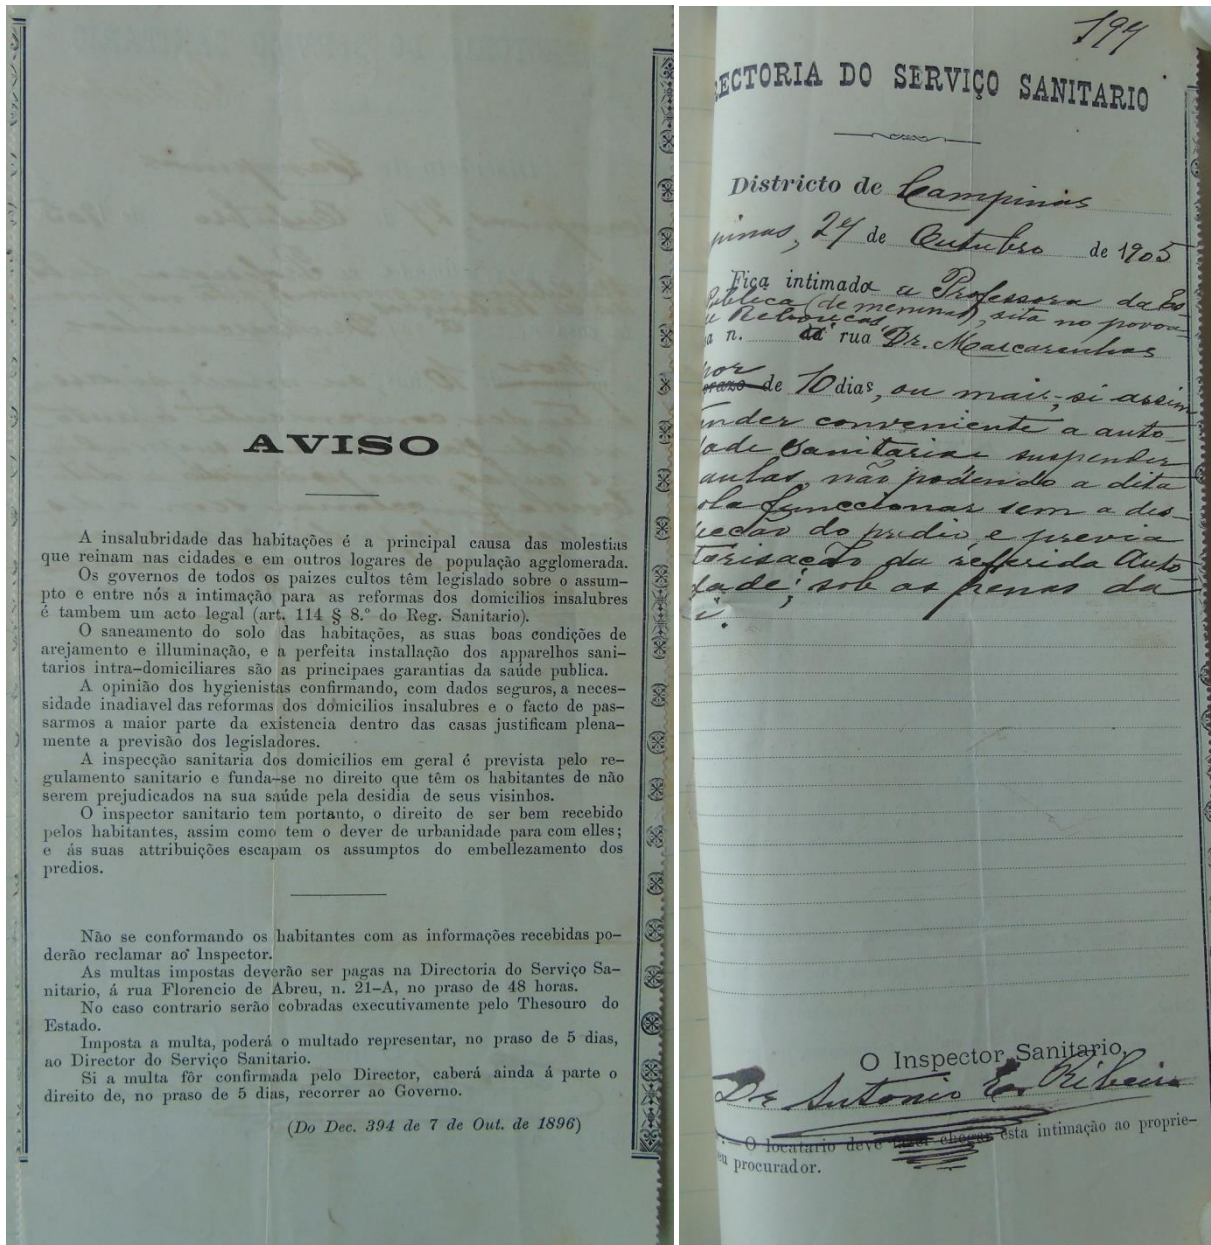 AVISO
A insalubridade das habitações é a principal causa das molestias
que reinam nas cidades e em outros logares de população agglomerada.
Os governos de todos os paizes cultos têm legislado sobre o assum-
pto e entre nós a intimação para as reformas dos domicilios insalubres
é tambem um acto legal (art. 114 § 8.º do Reg. Sanitario).
O saneamento do solo das habitações, as suas boas condições de
arejamento e illuminação, e a perfeita installação dos apparelhos sani-
tarios intra-domiciliares são as principaes garantias da saúde publica.
A opinião dos hygienistas confirmando, com dados seguros, a neces-
sidade inadiavel das reformas dos domicilios insalubres e o facto de pas-
sarmos a maior parte da existencia dentro das casas justificam plena-
mente a previsão dos legisladores.
A inspecção sanitaria dos domicilios em geral é prevista pelo re-
gulamento sanitario e funda-se no direito que têm os habitantes de não
serem prejudicados na sua saúde pela desidia de seus visinhos.
O inspector sanitario tem portanto, o direito de ser bem recebido
pelos habitantes, assim como tem o dever de urbanidade para com elles;
e ás suas attribuições escapam os assumptos do embellezamento dos
predios.
Não se conformando os habitantes com as informações recebidas po-
derão reclamar ao Inspector.
As multas impostas deverão ser pagas na Directoria do Serviço Sa-
nitario, á rua Florencio de Abreu, n. 21-A, no praso de 48 horas.
No caso contrario serão cobradas executivamente pelo Thesouro do
Estado.
Imposta a multa, poderá o multado representar, no praso de 5 dias,
ao Director do Serviço Sanitario.
Si a multa fôr confirmada pelo Director, caberá ainda á parte o
direito de, no praso de 5 dias, recorrer ao Governo.
(Do Dec. 394 de 7 de Out. de 1896)
RECTORIA DO SERVIÇO SANITARIO
Districto de Campinas
pinas, 27 de Outubro de 1905
Fica intimada a Professora da Es-
Publica (de meninas), sita no povoa-
de Rebouças
a n. á rua Dr. Mascarenhas
por
prazo de 10 dias, ou mais, si assim
ender conveniente a auto-
ade Sanitaria e suspender
aulas, não podendo a dita
ola funccionar sem a des-
fecção do predio, e previa
torisação da referida Auto
dade; sob as penas da
i.
O Inspector Sanitario,
Dr Antonio E. Ribeiro
O locatario deve fazer chegar esta intimação ao proprie-
eu procurador.